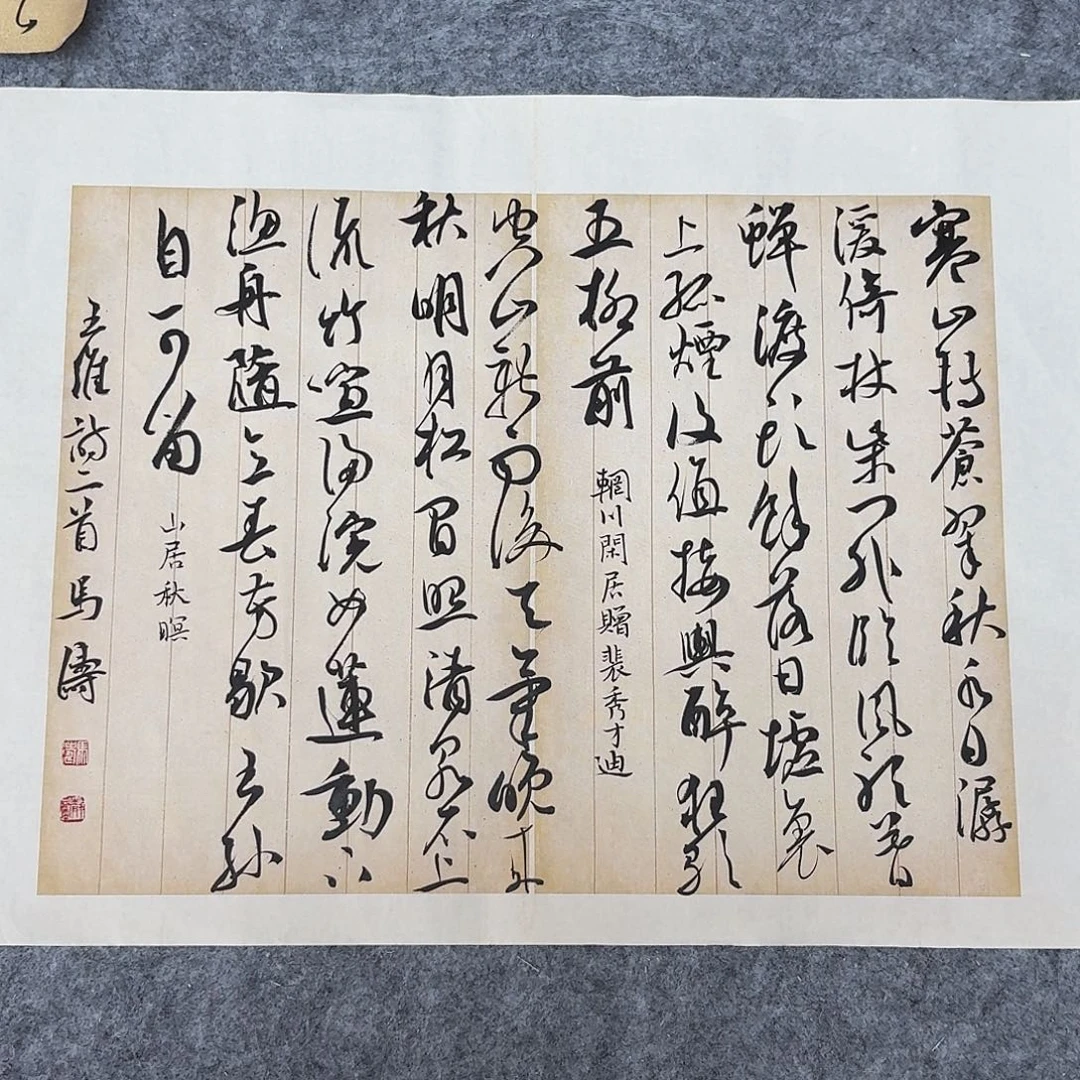 寒山轉蒼翠秋水日潺
湲倚杖柴門外臨風聽暮
蟬渡頭餘落日墟裏
上孤煙復值接輿醉狂歌
五柳前
輞川閑居贈裴秀才迪
空山新雨後天氣晚來
秋明月松間照清泉石上
流竹喧歸浣女蓮動下
漁舟隨意春芳歇王孫
自可留
山居秋暝
王維詩二首馬濤